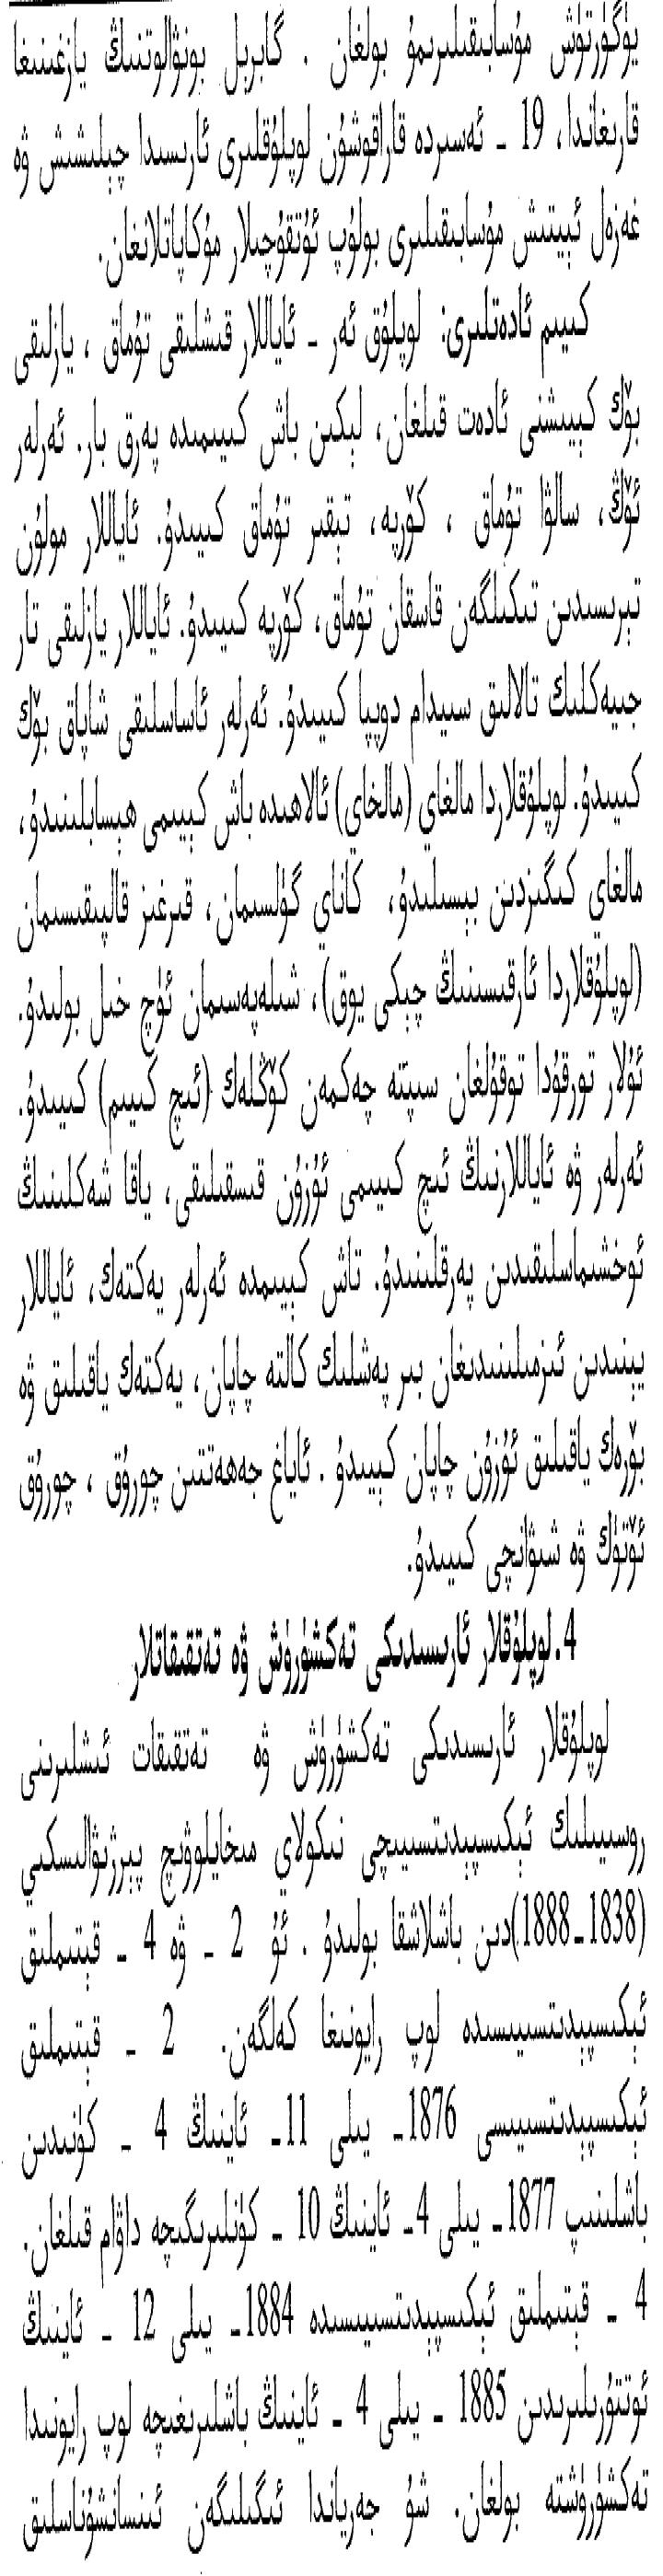 يۈگۈرتۈش مۇسابىقىلىرىمۇ بولغان . گابرىل بونۋالوتنىڭ يازغىنىغا
قارىغاندا، 19 ـ ئەسىردە قاراقوشۇن لوپلۇقلىرى ئارىسىدا چېلىشىش ۋە
غەزەل ئېيتىش مۇسابىقىلىرى بولۇپ ئۇتقۇچىلار مۇكاپاتلانغان.
كىيىم ئادەتلىرى: لوپلۇق ئەر ـ ئاياللار قىشلىقى تۇماق ، يازلىقى
بۆك كىيىشنى ئادەت قىلغان، لېكىن باش كىيىمىدە پەرق بار. ئەرلەر
ئۆڭ، سالۋا تۇماق ، كۆرپە، تېقىر تۇماق كىيىدۇ. ئاياللار مولۇن
تېرىسىدىن تىكىلگەن قاسقان تۇماق، كۆرپە كىيىدۇ. ئاياللار يازلىقى تار
جىيەكلىك تالالىق سىيدام دوپپا كىيىدۇ. ئەرلەر ئاساسلىقى شاپاق بۆك
كىيىدۇ. لوپلۇقلاردا مالغاي (مالخاي) ئالاھىدە باش كىيىمى ھېسابلىنىدۇ،
مالغاي كىگىزدىن بېسىلىدۇ، كاناي گۈلسىمان، قىرغىز قالپىقىسىمان
(لوپلۇقلاردا ئارقىسىنىڭ چېكى يوق)، شىلەپەسىمان ئۈچ خىل بولىدۇ.
ئۇلار تورقۇدا توقۇلغان سىپتە چەكمەن كۆڭلەك (ئىچ كىيىم) كىيىدۇ.
ئەرلەر ۋە ئاياللارنىڭ ئىچ كىيىمى ئۇزۇن قىسقىلىقى، ياقا شەكلىنىڭ
ئوخشىماسلىقىدىن پەرقلىنىدۇ. تاش كىيىمدە ئەرلەر يەكتەك، ئاياللار
يېنىدىن ئىزمىلىنىدىغان بىر پەشلىك كالتە چاپان، يەكتەك ياقىلىق ۋە
بۆرەك ياقىلىق ئۇزۇن چاپان كىيىدۇ . ئاياغ جەھەتتىن چورۇق ، چورۇق
ئۆتۈك ۋە شىۋانچى كىيىدۇ.
4.لوپلۇقلار ئارىسىدىكى تەكشۈرۈش ۋە تەتقىقاتلار
لوپلۇقلار ئارىسىدىكى تەكشۈرۈش ۋە تەتقىقات ئىشلىرىنى
روسىيىلىك ئېكىسپېدىتسىيىچى نىكولاي مىخايلوۋىچ پىرژىۋالىسكىي
(1838ـ1888)دىن باشلاشقا بولىدۇ . ئۇ 2 ـ ۋە 4 ـ قېتىملىق
ئېكىسپېدىتسىيىسىدە لوپ رايونىغا كەلگەن. 2 ـ قېتىملىق
ئېكىسپېدىتسىيىسى 1876ـ يىلى 11ـ ئاينىڭ 4 ـ كۈنىدىن
باشلىنىپ 1877ـ يىلى 4ـ ئاينىڭ 10 ـ كۈنلىرىگىچە داۋام قىلغان.
4 ـ قېتىملىق ئېكىسپېدىتسىيىسىدە 1884ـ يىلى 12 ـ ئاينىڭ
ئوتتۇرىلىرىدىن 1885 ـ يىلى 4 ـ ئاينىڭ باشلىرىغىچە لوپ رايونىدا
تەكشۈرۈشتە بولغان. شۇ جەرياندا ئىگىلىگەن ئىنسانشۇناسلىق